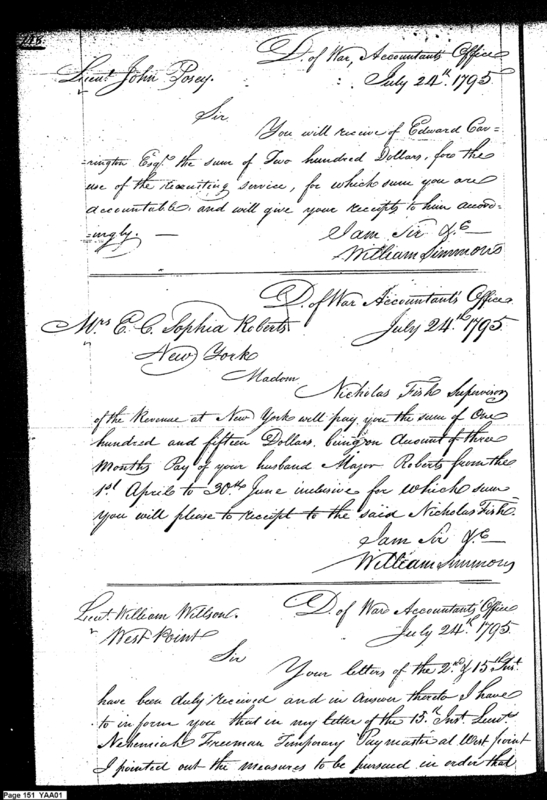 218
D. of War, Accountants Office
Lieut. John Posey.
July 24th. 1795.
Sir
You will receive of Edward Car-
-rington Esqr. the sum of Two hundred Dollars, for the
use of the recruiting service, for which sum you are
accountable, and will give your receipts to him accord-
-ingly. —
I am Sir &c
William Simmons
D. of War Accountants Office
Mrs E. C. Sophia Roberts
July 24th 1795
New York
Madam
Nicholas Fish Supervisor
of the Revenue at New York will pay you the sum of One
hundred and fifteen Dollars. being on Amount of three
Months Pay of your husband Major Roberts from the
1st April to 30th June inclusive for which sum
you will please to receipt to the said Nicholas Fish.
I am Sir &c
William Simmons
Lieut. William Willson.
D. of War Accountants Office
West Point
July 24th. 1795.
Sir
Your letters of the 2nd. & 15th Inst
have been duly received and in answer thereto I have
to inform you that in my letter of the 15th Inst Lieut.
Nehemiah Freeman Temporary Paymaster at West point
I pointed out the measures to be pursued in order that
Page 151 YAA01